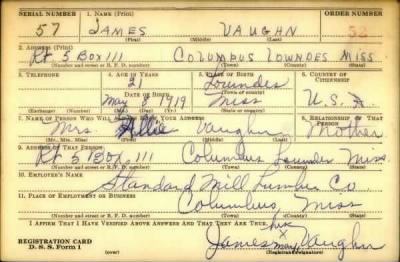 SERIAL NUMBER 1. NAME (Print) ORDER NUMBER
57 JAMES VAUGHN
(First) (Middle) (Last)
2. ADDRESS (Print)
Rt 5 Box 111 COLUMBUS LOWNDES MISS
(Number and street or R. F. D. number) (Town) (County) (State)
3. TELEPHONE 4. AGE IN YEARS 5. PLACE OF BIRTH 6. COUNTRY OF CITIZENSHIP
21 Lowndes
DATE OF BIRTH (Town or county)
May 1919 Miss U.S.A.
(Exchange) (Number) (Mo.) (Day) (Yr.) (State or country)
7. NAME OF PERSON WHO WILL ALWAYS KNOW YOUR ADDRESS 8. RELATIONSHIP OF THAT PERSON
Mrs. Vaughn Mother
(Mr., Mrs., Miss) (First) (Middle) (Last)
9. ADDRESS OF THAT PERSON
Rt 5 Box. 111 Columbus Lowndes Miss.
(Number and street or R. F. D. number) (Town) (County) (State)
10. EMPLOYER'S NAME
Standard Mill Lumber Co
11. PLACE OF EMPLOYMENT OR BUSINESS
Columbus, Miss
(Number and street or R. F. D. number) (Town) (County) (State)
I AFFIRM THAT I HAVE VERIFIED ABOVE ANSWERS AND THAT THEY ARE TRUE.
his
James X Vaughn
mark
REGISTRATION CARD
D. S. S. Form 1 (over) (Registrant's signature)